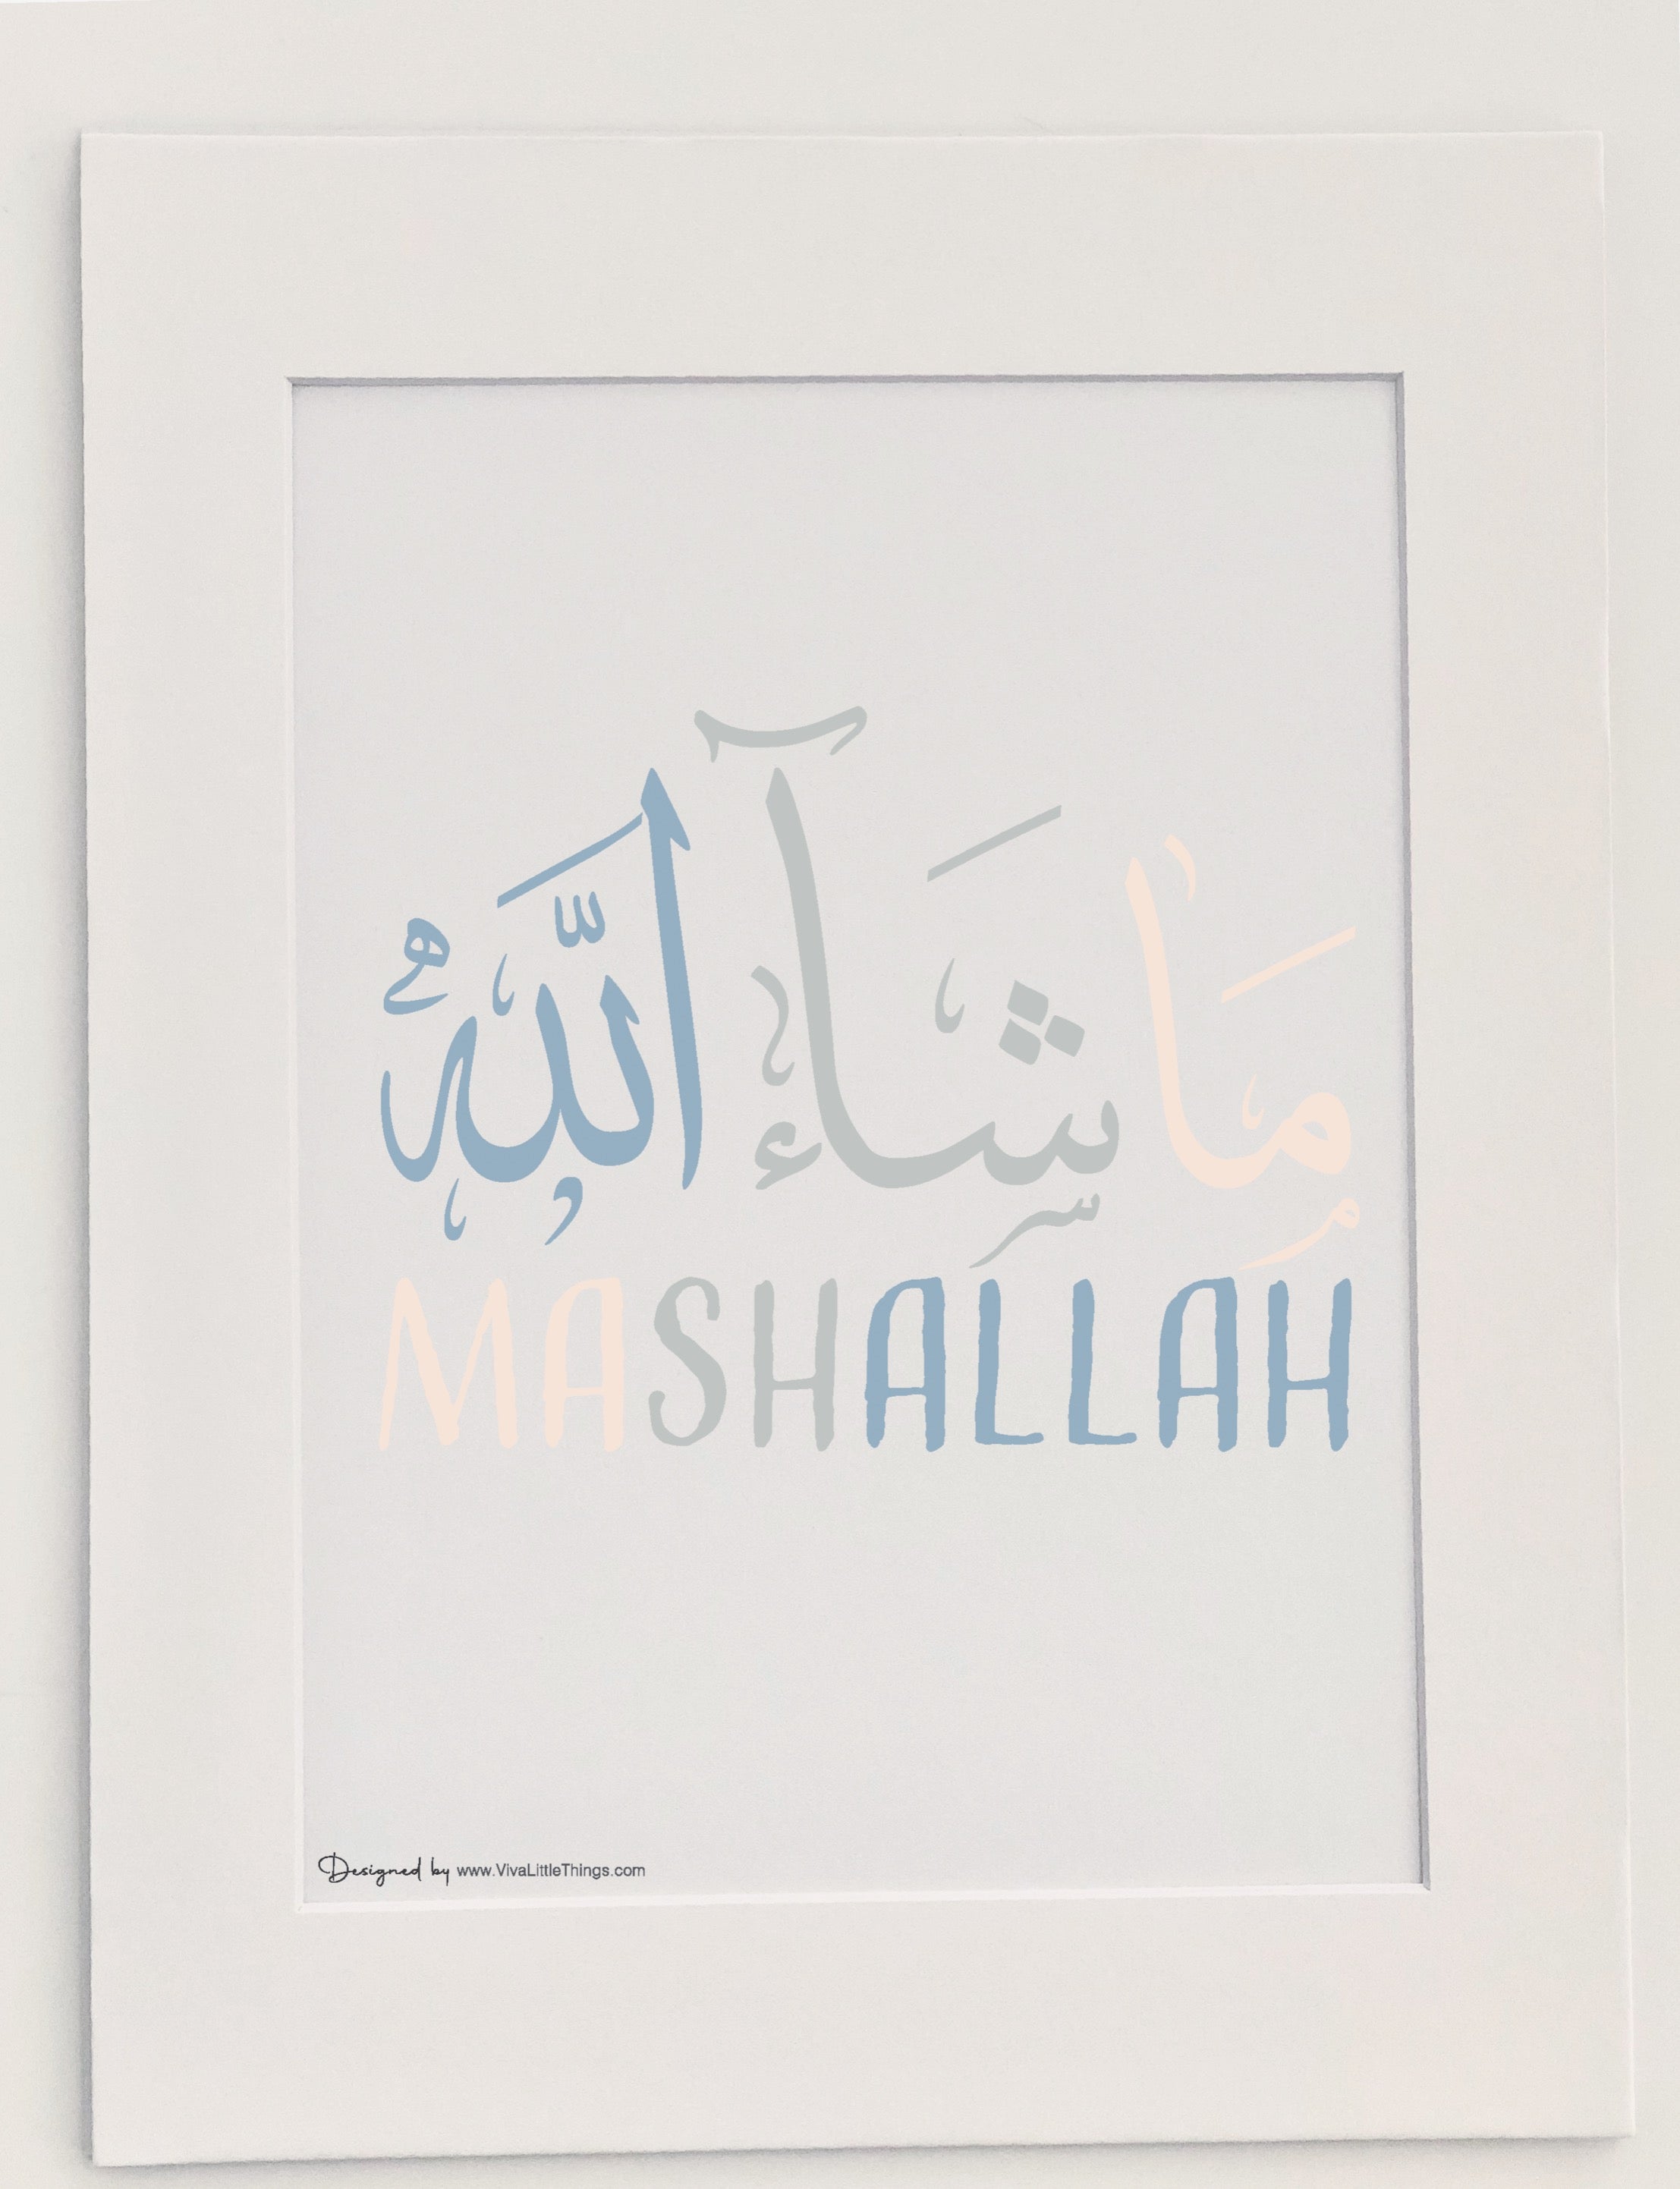 مَا شَآءَ اللّٰهُ
MASHALLAH
Designed by www.VivaLittleThings.com